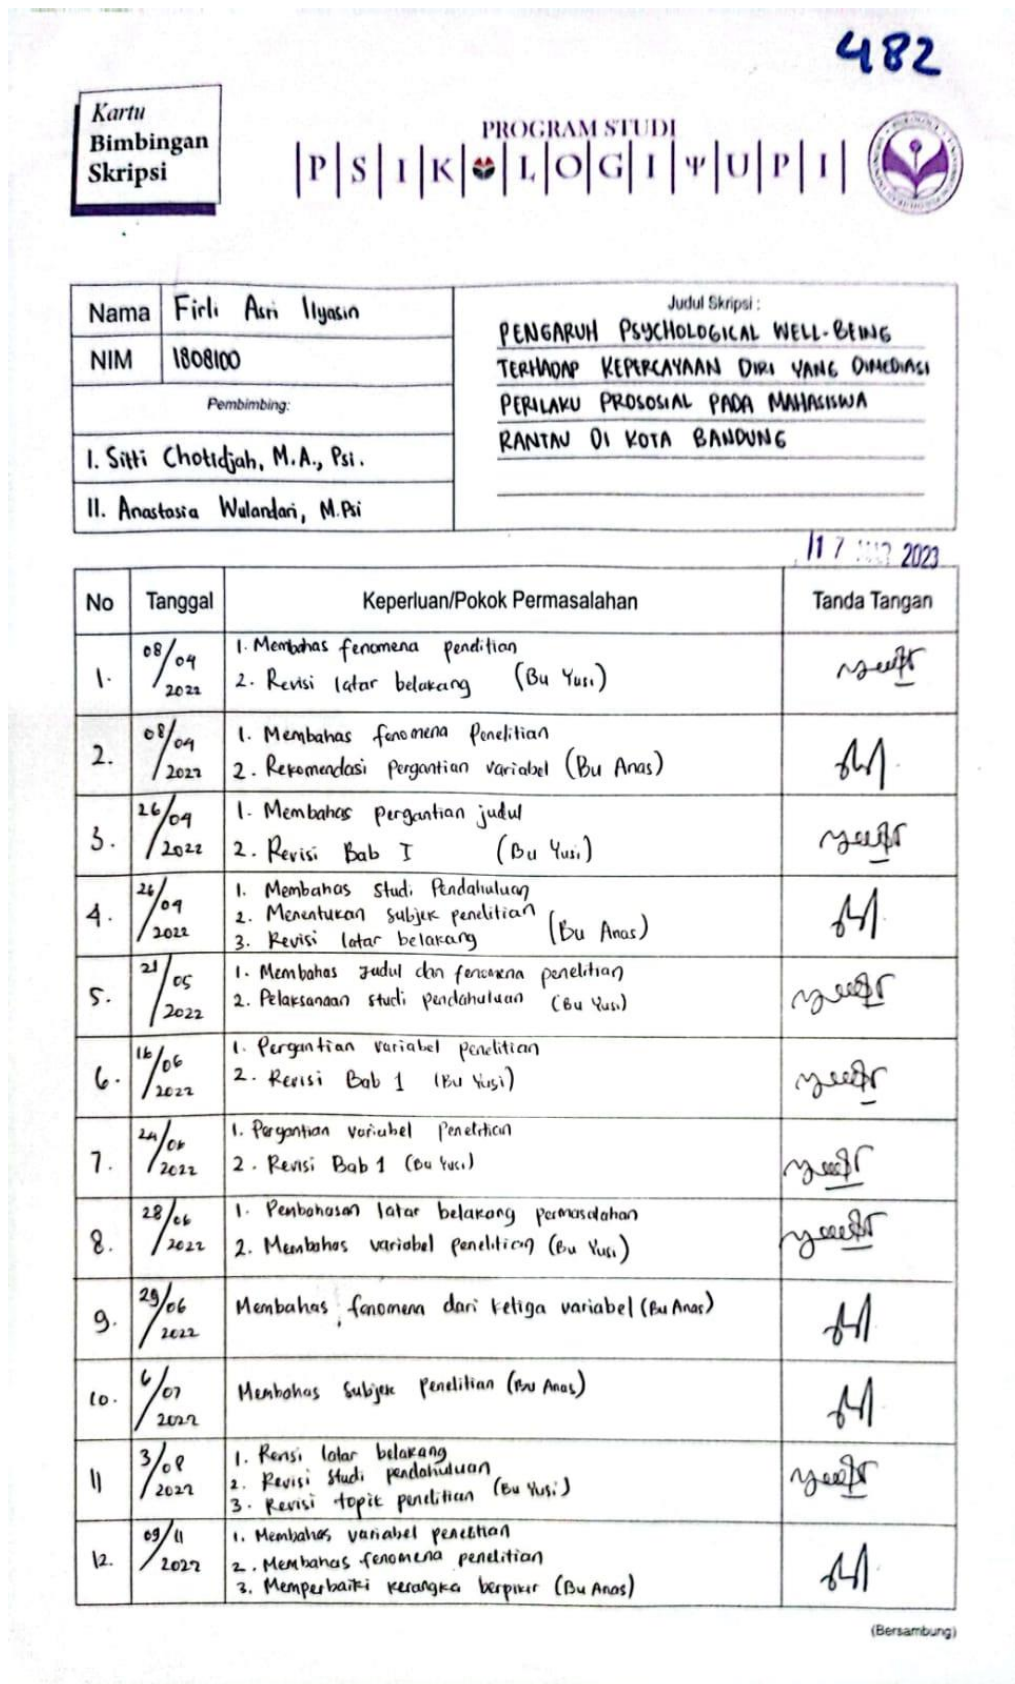 482
Kartu
Bimbingan
Skripsi
PROGRAM STUDI
|P|S|I|K|O|L|O|G|I|Ψ|U|P|I|
Nama Firli Asri Ilyasin
NIM 1808100
Pembimbing:
I. Sitti Chotidjah, M.A., Psi.
II. Anastasia Wulandari, M.Psi
Judul Skripsi :
PENGARUH PSYCHOLOGICAL WELL-BEING
TERHADAP KEPERCAYAAN DIRI YANG DIMEDIASI
PERILAKU PROSOSIAL PADA MAHASISWA
RANTAU DI KOTA BANDUNG
17 2023
No Tanggal Keperluan/Pokok Permasalahan Tanda Tangan
1. 08/04/2022
1. Membahas fenomena penelitian
2. Revisi latar belakang (Bu Yusi)
2. 08/04/2022
1. Membahas fenomena Penelitian
2. Rekomendasi pergantian variabel (Bu Anas)
3. 26/04/2022
1. Membahas pergantian judul
2. Revisi Bab I (Bu Yusi)
4. 26/04/2022
1. Membahas Studi Pendahuluan
2. Menentukan Subjek penelitian
3. Revisi latar belakang (Bu Anas)
5. 21/05/2022
1. Membahas Judul dan fenomena penelitian
2. Pelaksanaan studi pendahuluan (Bu Yusi)
6. 16/06/2022
1. Pergantian variabel penelitian
2. Revisi Bab 1 (Bu Yusi)
7. 24/06/2022
1. Pergantian variabel Penelitian
2. Revisi Bab 1 (Bu Yusi)
8. 28/06/2022
1. Pembahasan latar belakang permasalahan
2. Membahas variabel penelitian (Bu Yusi)
9. 29/06/2022
Membahas fenomena dari ketiga variabel (Bu Anas)
10. 6/07/2022
Membahas Subjek Penelitian (Bu Anas)
11 3/08/2022
1. Revisi latar belakang
2. Revisi Studi pendahuluan
3. Revisi topik penelitian (Bu Yusi)
12. 09/11/2022
1. Membahas variabel penelitian
2. Membahas fenomena penelitian
3. Memperbaiki kerangka berpikir (Bu Anas)
(Bersambung)